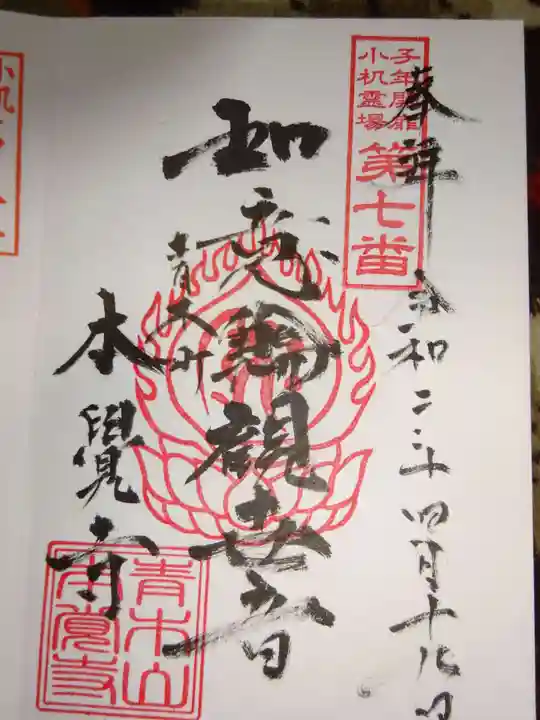 奉拝
令和二年四月十九日
子年開扉
小机霊場
第七番
如意輪観世音
青木町
本覺寺
青木山
本覚寺
小机